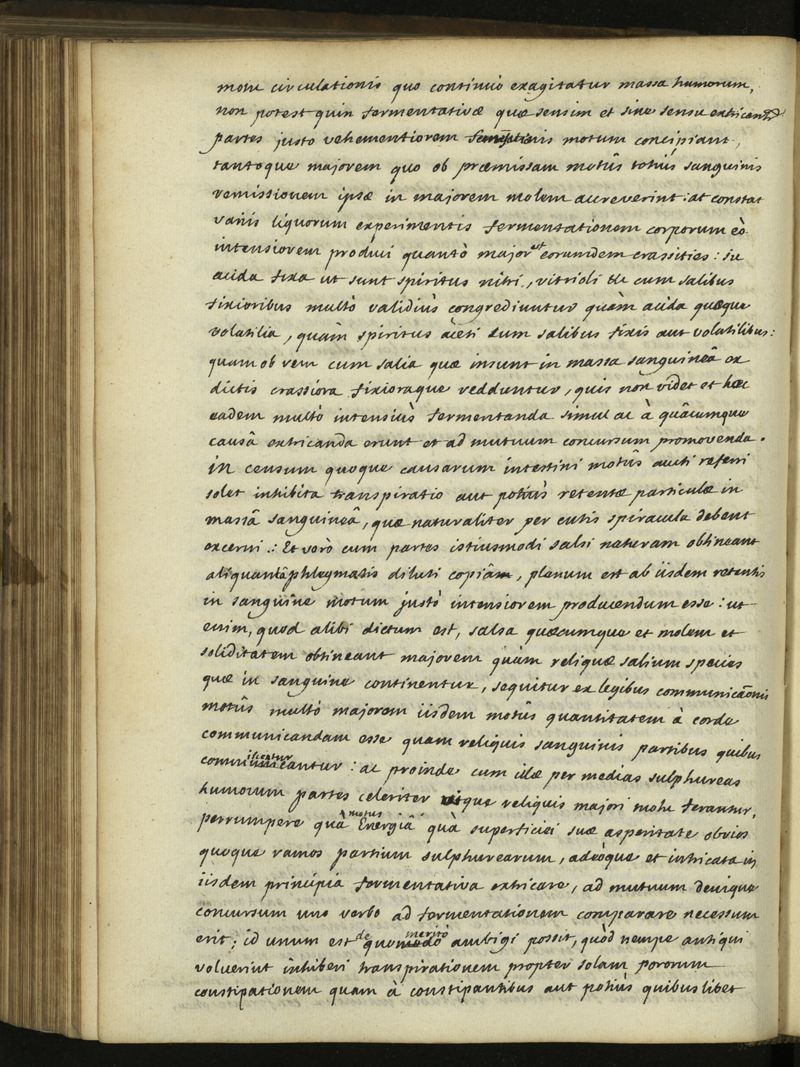 motu circulationis quo continuò exagitatur massa humorum,
non potest quin fermentativæ quæ sensim et sine sensu extricantur
partes justo vehementiorem motum concipiant,
tantoque majorem quo ob præmissam motûs totius sanguinis
remissionem ipsæ in majorem molem accreverint: at constat
variis liquorum experimentis fermentationem corporum eò
intensiorem produci quantò major est eorumdem crassities: sic
acida fixa ut sunt spiritus nitri, vitrioli &c cum salibus
fixioribus multò validiùs congrediuntur quàm acida quæque
volatilia, quàm spiritus aceti cum salibus fixis aut volatilibus:
quam ob rem cum salia quæ insunt in massa sanguineâ ex
dictis crassiora fixioraque redduntur, quis non videt et hæc
eadem multò intensiùs fermentanda simul ac à quâcumque
causâ extricanda erunt et ad mutuum concursum promovenda.
in censum quoque causarum intestini motûs aucti referri
solet inhibita transpiratio aut potiùs retentæ particulæ in
massâ sanguineâ, quæ naturaliter per cutis spiracula debent
excerni: Et verò cum partes istiusmodi salsi naturam obtineant
aliquantâ phlegmatis diluti copiâ, planum est ab iisdem retentis
in sanguine motum justò intensiorem producendum esse: ut
enim, quod alibi dictum est, salsa quæcumque et molem et
soliditatem obtineant majorem quàm reliquæ salium species
quæ in sanguine continentur, sequitur ex legibus communicãonis
motûs multò majorem iisdem motûs quantitatem à corde
communicandam esse quam reliquis sanguinis partibus quibus
: ac proinde cum illæ per medias sulphureas
humorum partes celeriter utque reliquis majori motu ferantur,
perrumpere quâ motus Energiâ quà superficiei suæ asperitate obvios
quoque ramos partium sulphurearum, adeòque et intricata in
iisdem principia fermentativa extricare, ad mutuum denique
concursum uno verbo ad fermentationem comparare necessum
erit; id unum est de quo meritò ambigi possit, quòd nempe antiqui
voluerint inhiberi transpirationem propter solam pororum
constipationem quam à constipantibus aut potiùs quibuslibet